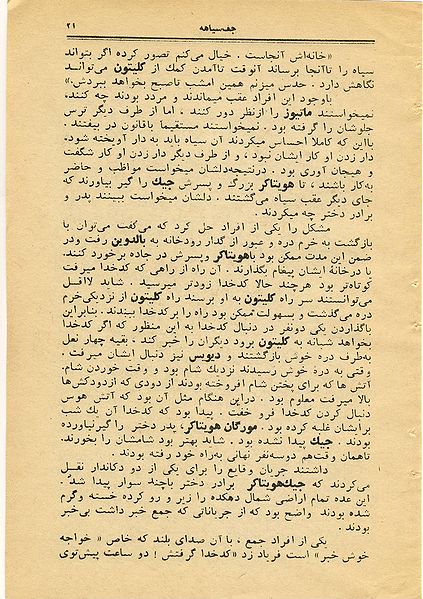 جفدسیاهه
۲۱
«خانه‌اش آنجاست . خیال می‌کنم تصور کرده اگر بتواند
سیاه را تا آنجا برساند آنوقت تا آمدن کمک از کلیتون می‌تواند
نگاهش دارد . حدس میزنم همین امشب تا صبح بخواهد ببردش.»
باوجود این افراد عقب میماندند و مردد بودند چه کنند،
نمیخواستند ماتیوز را از نظر دور کنند ، اما از طرف دیگر ترس
جلوشان را گرفته بود . نمیخواستند مستقیما با قانون در بیفتند .
با این که کاملا احساس میکردند آن سیاه باید به دار آویخته شود،
دار زدن او کار ایشان نبود ، و از طرف دیگر دار زدن او کار شگفت
و هیجان آوری بود . در نتیجه دلشان میخواست مواظب و حاضر
به کار باشند ، تا هویتاکر بزرگ و پسرش جیک را گیر بیاورند که
جای دیگر عقب سیاه می‌گشتند . دلشان میخواست ببینند پدر و
برادر دختر چه میکردند .
مشکل را یکی از افراد حل کرد که می‌گفت می‌توان با
بازگشت به خرم دره و عبور از گدار رودخانه به بالدوین رفت ودر
ضمن این مدت ممکن بود با هویتاکر وپسرش در جاده برخورد کنند.
یا درخانهٔ ایشان پیغام بگذارند . آن راه از راهی که کدخدا میرفت
کوتاه‌تر بود هرچند حالا کدخدا زودتر میرسید . شاید لااقل
می‌توانستند سر راه کلیتون به او برسند راه کلیتون از نزدیکی خرم
دره می‌گذشت و بسهولت ممکن بود راه را بر کدخدا ببندند . بنابراین
با گذاردن یکی دونفر در دنبال کدخدا به این منظور که اگر کدخدا
بخواهد شبانه به کلیتون برود دیگران را خبر کند ، بقیه چهار نعل
به‌طرف دره خوش بازگشتند و دیویس نیز دنبال ایشان میرفت .
وقتی به درهٔ خوش رسیدند نزدیک شام بود و وقت خوردن شام.
آتش ها که برای پختن شام افروخته بودند از دودی که از دودکش‌ها
بالا میرفت معلوم بود . در این هنگام مثل آن بود که آتش هوس
دنبال کردن کدخدا فرو خفت . پیدا بود که کدخدا آن یک شب
برایشان غلبه کرده بود . مورگان هویتاکر، پدر دختر را گیر نیاورده
بودند . جیک پیدا نشده بود . شاید بهتر بود شامشان را بخورند.
تا همان وقت هم دوسه‌نفر نهانی به‌راه خود رفته بودند .
داشتند جریان وقایع را برای یکی از دو دکاندار نقل
می‌کردند که جیک هویتاکر برادر دختر با چند سوار پیدا شد .
این عده تمام اراضی شمال دهکده را زیر و رو کرده خسته وگرم
شده بودند واضح بود که از جریاناتی که جمع خبر داشت بی‌خبر
بودند .
یکی از افراد جمع ، با آن صدای بلند که خاص « خواجه
خوش خبر» است فریاد زد «کدخدا گرفتش ! دو ساعت پیش توی